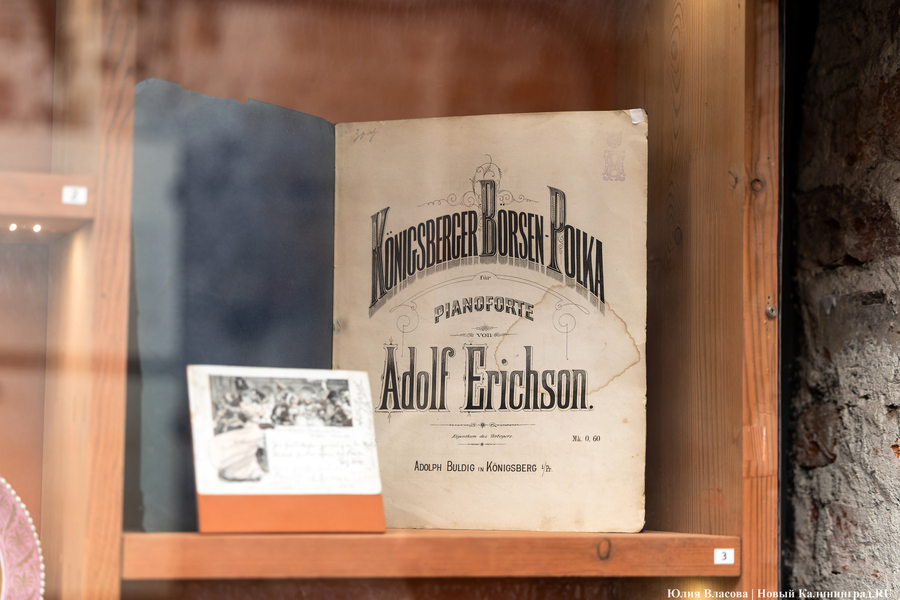 307
KÖNIGSBERGER BÖRSEN-POLKA
für
PIANOFORTE
von
Adolf Erichson.
Eigenthum des Verlegers.
Mk. 0, 60
ADOLPH BULDIG IN KÖNIGSBERG i/Pr.
2
3
Юлия Власова | Новый Калининград.RU